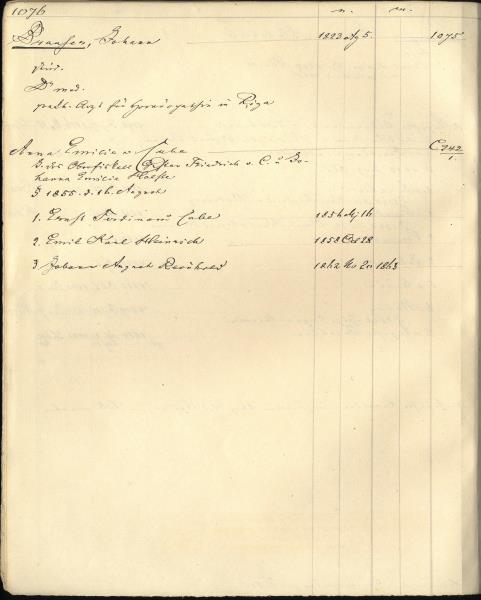 1076 n. m.
Brauser, Johann 1823 5. 1075
stud.
Dr med.
prakt. Arzt für Homöopathie in Riga
Anna Emilie v. Cube C 242
1.
T. des Oberfiskals Friedrich v. C. u Jo-
hanna Emilie
§ 1855. d. 16. August
1. Ernst Ferdinand Cube 185 16
2. Emil Karl Heinrich 1858 Oct 28
3 Johann August Reinhold 1862 Nv 20 1863